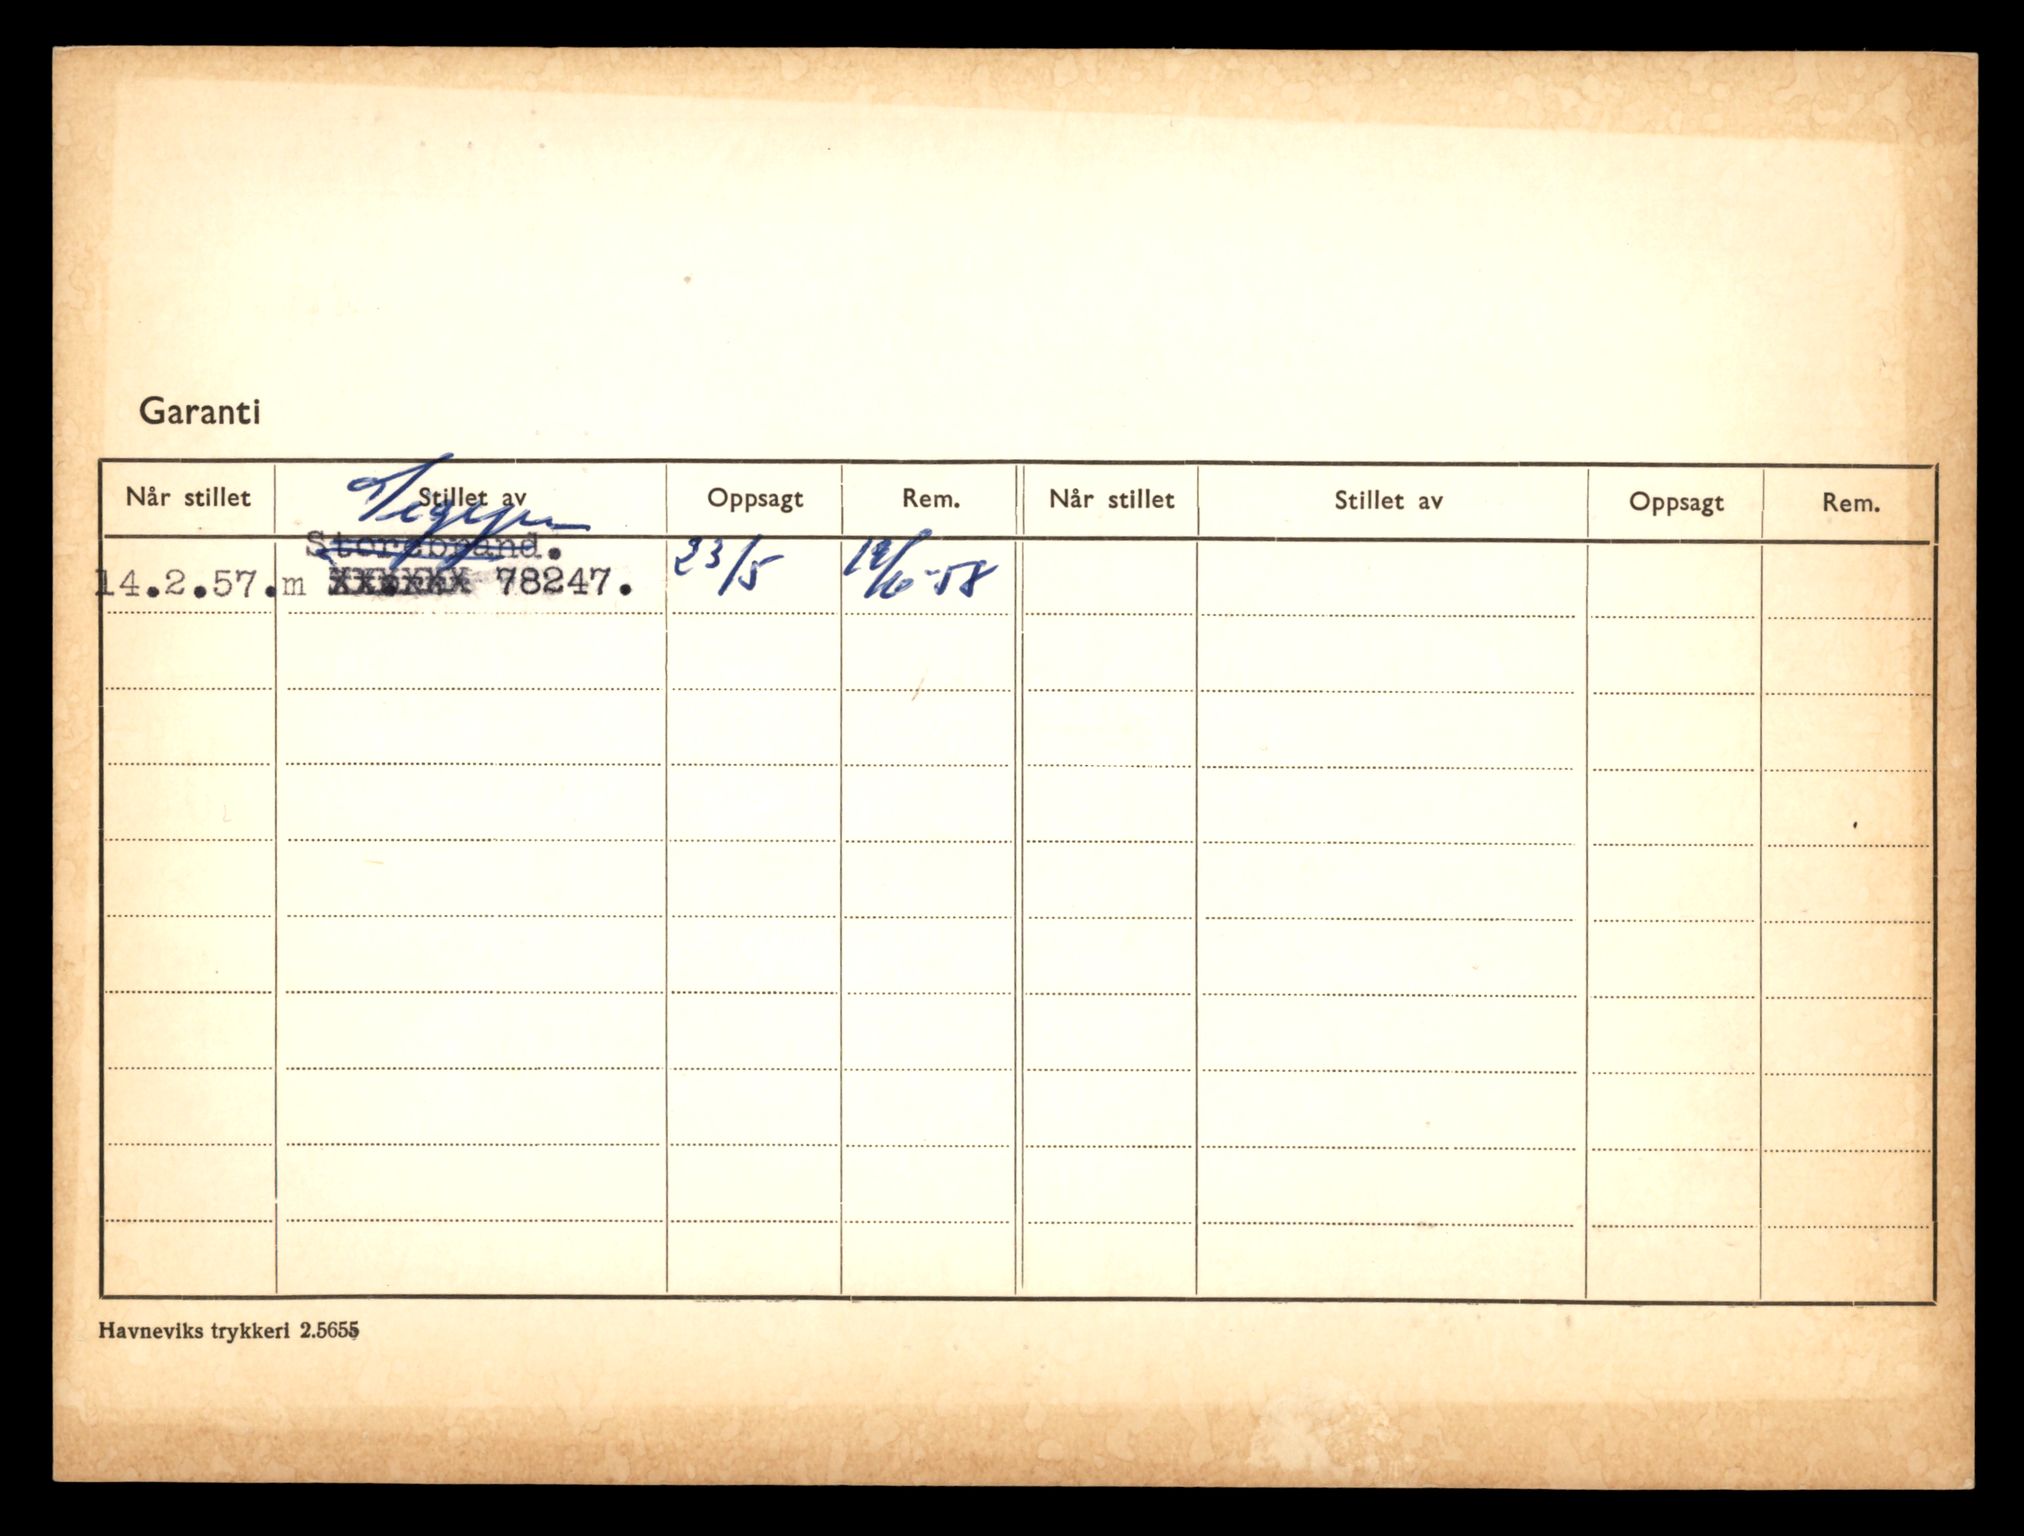 Garanti
Når stillet Stillet av Oppsagt Rem. Når stillet Stillet av Oppsagt Rem.
Storebrand.
14.2.57.m 78247. 23/5 19/6-58
Havneviks trykkeri 2.5655